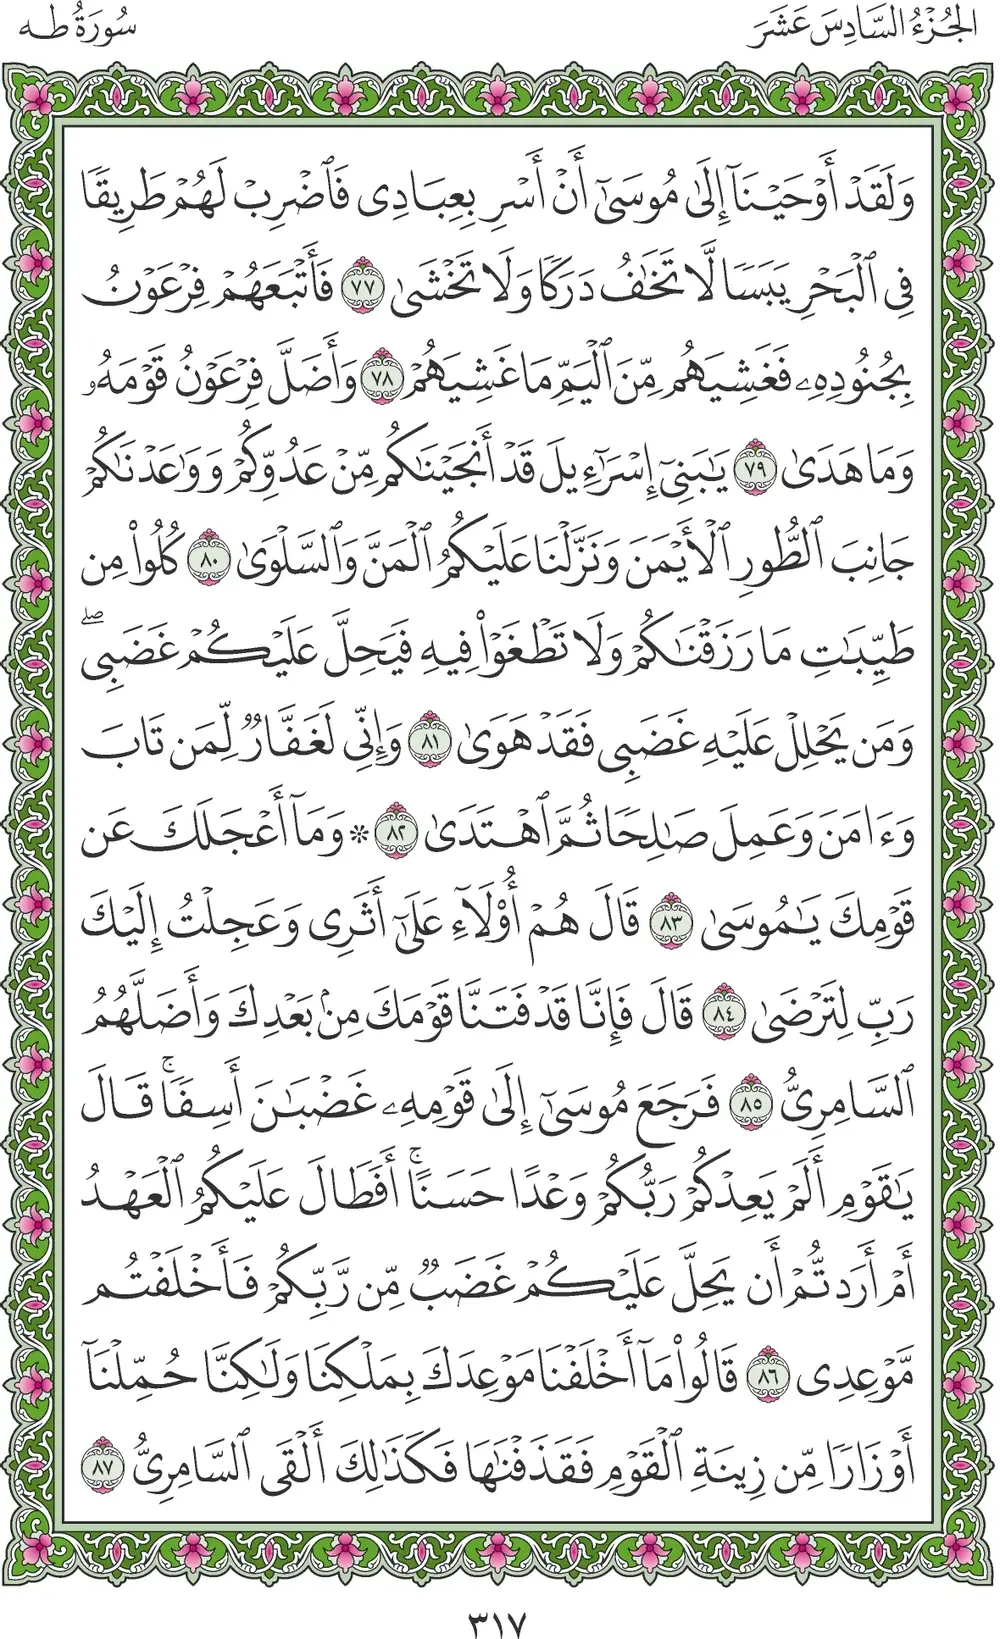 الجُزْءُ السَّادِسَ عَشَرَ
سُورَةُ طه
وَلَقَدْ أَوْحَيْنَآ إِلَىٰ مُوسَىٰٓ أَنْ أَسْرِ بِعِبَادِى فَٱضْرِبْ لَهُمْ طَرِيقًا
فِى ٱلْبَحْرِ يَبَسًا لَّا تَخَٰفُ دَرَكًا وَلَا تَخْشَىٰ ٧٧ فَأَتْبَعَهُمْ فِرْعَوْنُ
بِجُنُودِهِۦ فَغَشِيَهُم مِّنَ ٱلْيَمِّ مَا غَشِيَهُمْ ٧٨ وَأَضَلَّ فِرْعَوْنُ قَوْمَهُۥ
وَمَا هَدَىٰ ٧٩ يَٰبَنِىٓ إِسْرَٰٓءِيلَ قَدْ أَنجَيْنَٰكُم مِّنْ عَدُوِّكُمْ وَوَٰعَدْنَٰكُمْ
جَانِبَ ٱلطُّورِ ٱلْأَيْمَنَ وَنَزَّلْنَا عَلَيْكُمُ ٱلْمَنَّ وَٱلسَّلْوَىٰ ٨٠ كُلُوا۟ مِن
طَيِّبَٰتِ مَا رَزَقْنَٰكُمْ وَلَا تَطْغَوْا۟ فِيهِ فَيَحِلَّ عَلَيْكُمْ غَضَبِى ۖ
وَمَن يَحْلِلْ عَلَيْهِ غَضَبِى فَقَدْ هَوَىٰ ٨١ وَإِنِّى لَغَفَّارٌ لِّمَن تَابَ
وَءَامَنَ وَعَمِلَ صَٰلِحًا ثُمَّ ٱهْتَدَىٰ ٨٢ * وَمَآ أَعْجَلَكَ عَن
قَوْمِكَ يَٰمُوسَىٰ ٨٣ قَالَ هُمْ أُو۟لَآءِ عَلَىٰٓ أَثَرِى وَعَجِلْتُ إِلَيْكَ
رَبِّ لِتَرْضَىٰ ٨٤ قَالَ فَإِنَّا قَدْ فَتَنَّا قَوْمَكَ مِنۢ بَعْدِكَ وَأَضَلَّهُمُ
ٱلسَّامِرِىُّ ٨٥ فَرَجَعَ مُوسَىٰٓ إِلَىٰ قَوْمِهِۦ غَضْبَٰنَ أَسِفًا ۚ قَالَ
يَٰقَوْمِ أَلَمْ يَعِدْكُمْ رَبُّكُمْ وَعْدًا حَسَنًا ۚ أَفَطَالَ عَلَيْكُمُ ٱلْعَهْدُ
أَمْ أَرَدتُّمْ أَن يَحِلَّ عَلَيْكُمْ غَضَبٌ مِّن رَّبِّكُمْ فَأَخْلَفْتُم
مَّوْعِدِى ٨٦ قَالُوا۟ مَآ أَخْلَفْنَا مَوْعِدَكَ بِمَلْكِنَا وَلَٰكِنَّا حُمِّلْنَآ
أَوْزَارًا مِّن زِينَةِ ٱلْقَوْمِ فَقَذَفْنَٰهَا فَكَذَٰلِكَ أَلْقَى ٱلسَّامِرِىُّ ٨٧
٣١٧